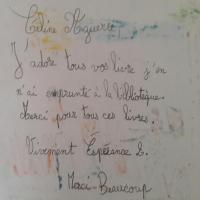 Celine Aguerre,
J'adore tous vos livre j'en
n'ai emprunté à la bibliotèque.
Merci pour tous ces livres.
Vivement Espérance 2.
Merci Beaucoup